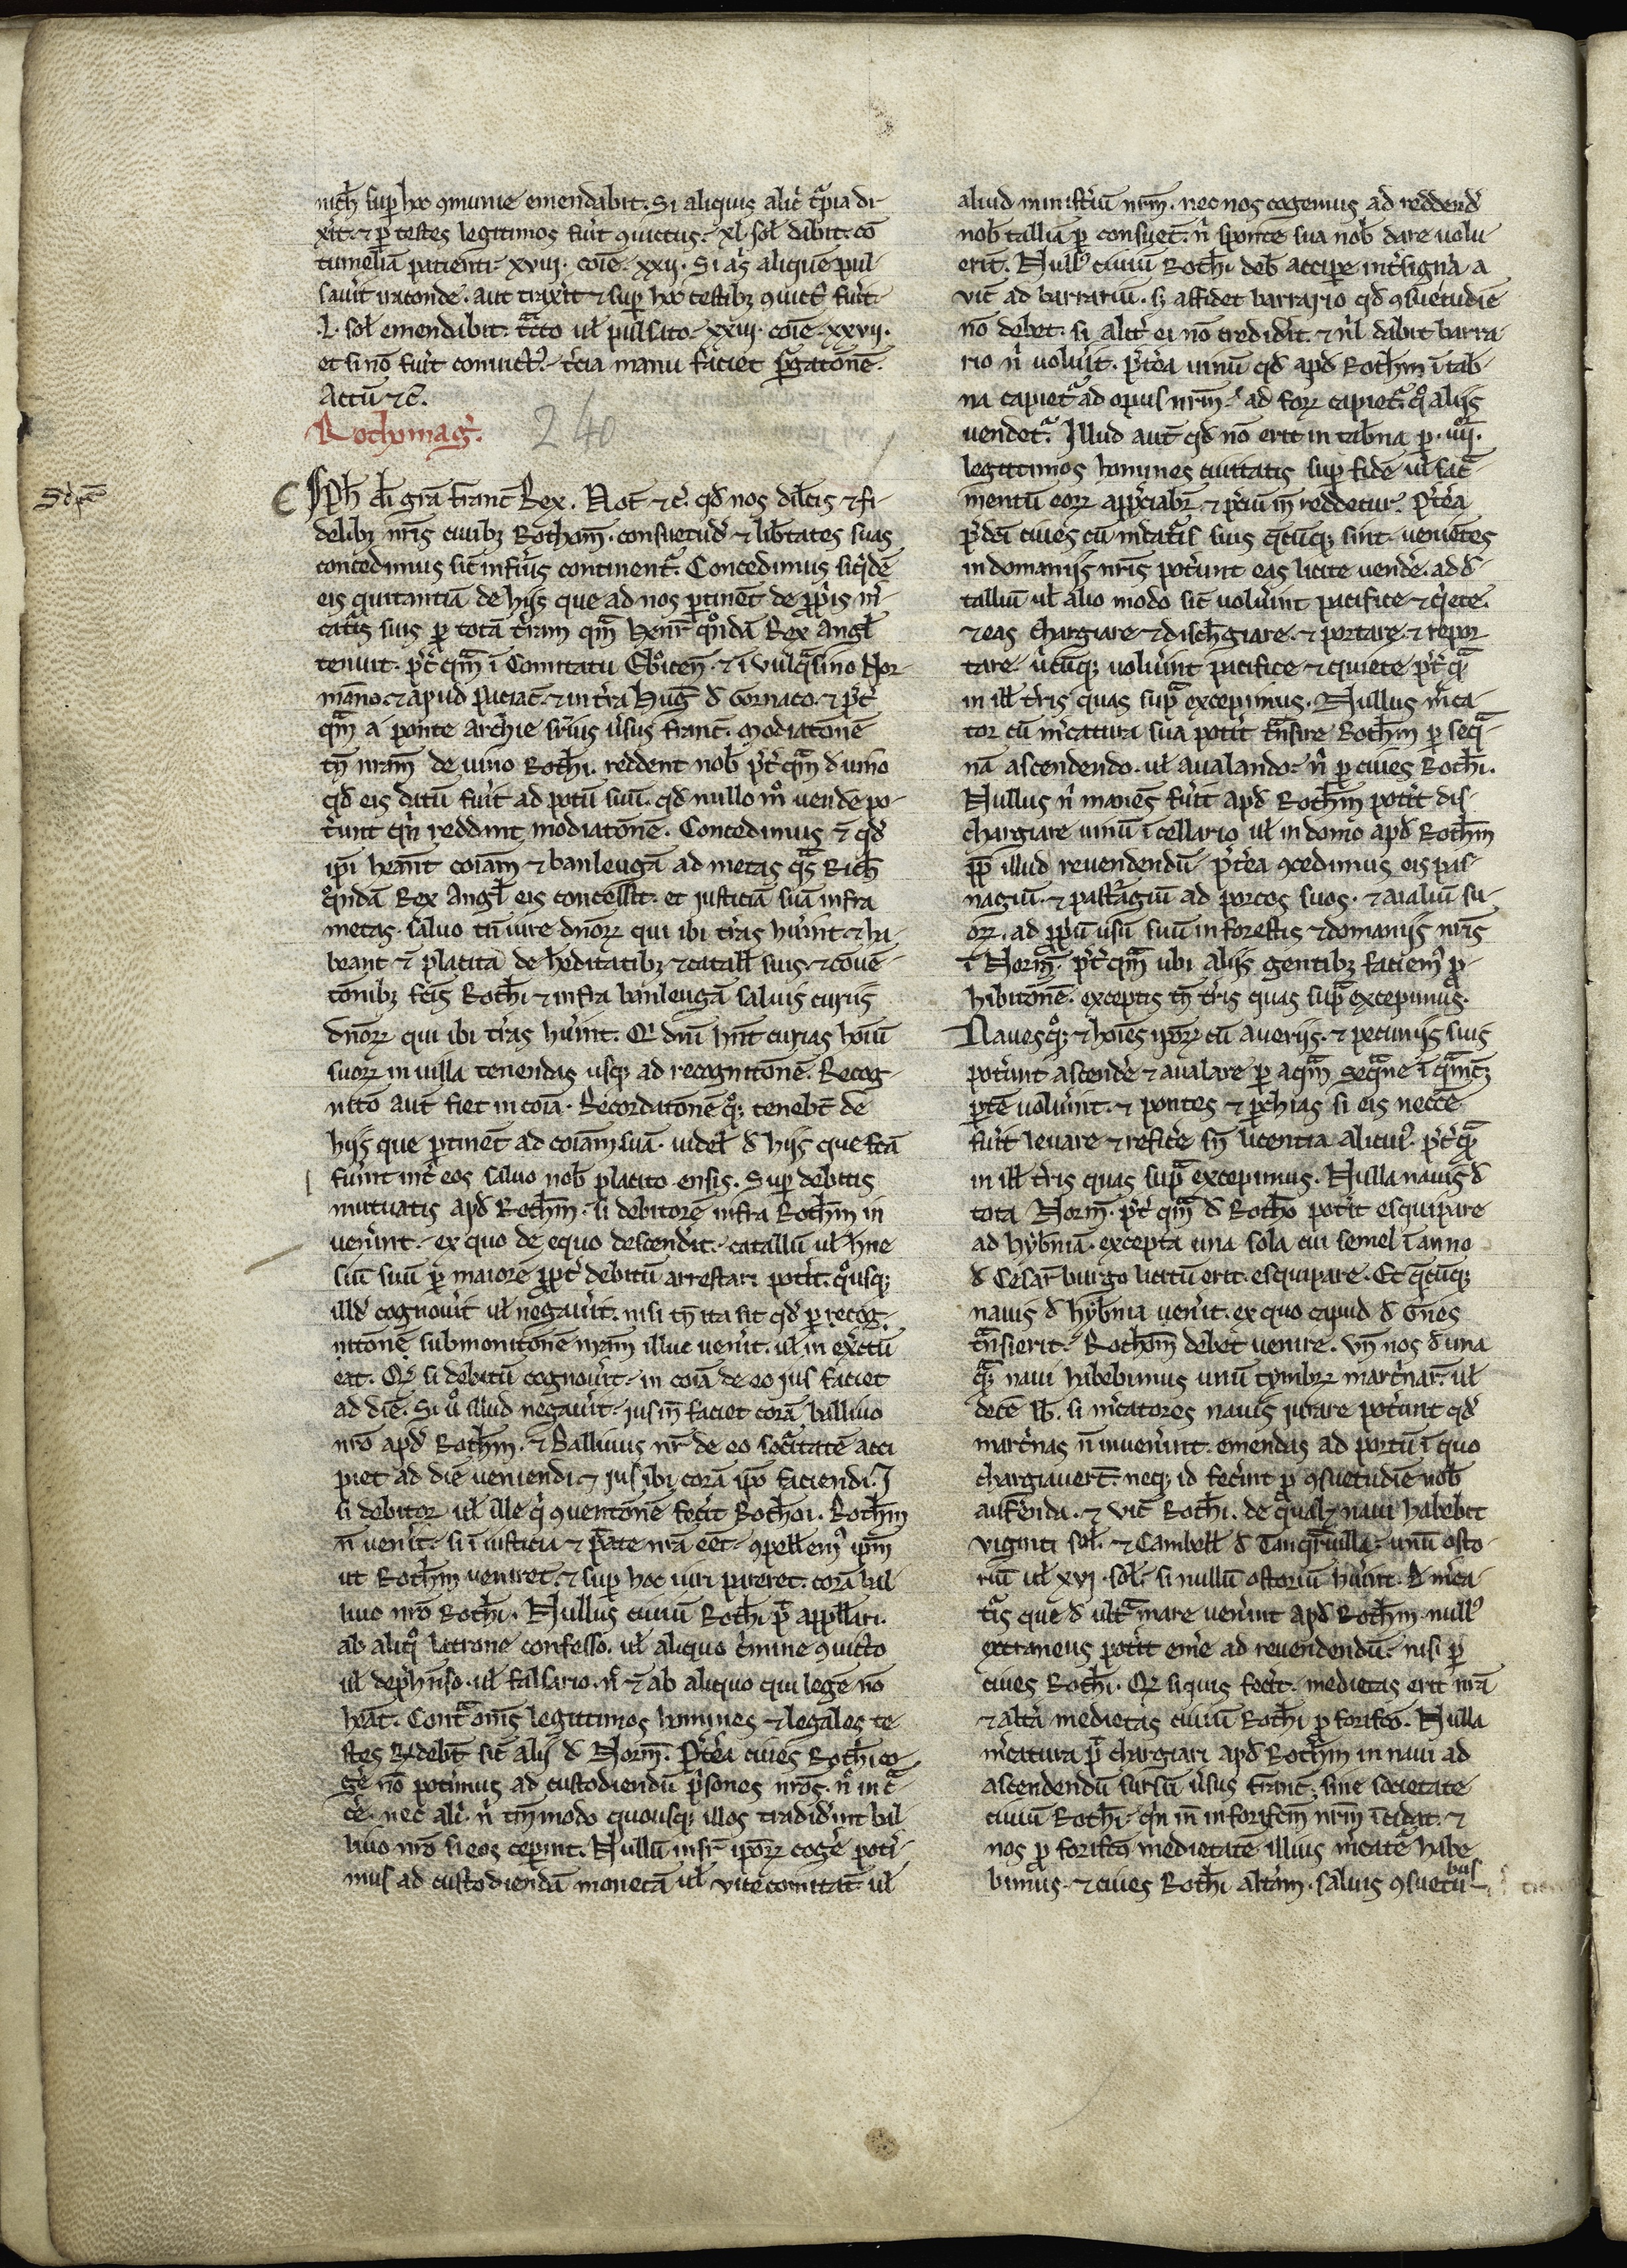 nich̄ sup hoc ꝯmunie emendabit. Si aliquis alic̄ t̾pia di
xit. ⁊ ꝑ testes legitimos fuit ꝯuictus. xl. sol̄ dabit. cō
tumeliā patienti. xviij. cōie. xxij. Si q̾s aliquē pul
sauit iraconde. aut traxit ⁊ sup hoc testibꝫ ꝯuict̾ fuit.
.L. sol̄ emendabit. tᵃcto ul̄ pulsato. xxiij. cōie. xxvij.
et si nō fuit conuict̾. t̾cia manu faciet ꝑgatōnē.
Actū ⁊c̄.
Rothomag̾.
240
Ph̄ di gr̄a franc̄ Rex. Not̄ ⁊c̄. qđ nos dilc̄is ⁊ fi
delibꝫ nr̄is ciuibꝫ Rothom̄. consuetud̄ ⁊ lib̄tates suas
concedimus sic̄ inf̾ius continent̾. Concedimus siq̾dē
eis quitantiā de hijs que ad nos ꝑtinēt de ꝓp̾is m̾
catis suis ꝑ totā t̾ram qᵃm henr̄ qᵒndā Rex Angl̄
tenuit. p̾t̾ qᵃm ī Comitatu Ebᵒicen̄. ⁊ ī Vulq̾sino Nor
māno. ⁊ apud paciac̄. ⁊ in t̾ra hug̾ đ Gornaco. ⁊ p̾t̾
qᵃm a ponte archie sr̄ius ūsus franc̄. modiatōnē
tn̄ nr̄am de uino Roth̄i. reddent nob̄ p̾t̾ qᵃm đ uino
qđ eis datū fuit ad potū suū. qđ nullo mᵒ uende po
t̾unt q̾n reddant modiatōnē. Concedimus ⁊ qđ
ip̄i hēant cōiam ⁊ banleugā ad metas qᵃs Rich̄
qᵒndā Rex Angl̄ eis concessit. et justiciā suā infra
metas. saluo tn̄ iure dn̄oꝝ qui ibi t̾ras hūint ⁊ ha
beant ⁊ placita de hēditatibꝫ ⁊ catall̄ suis. ⁊ cōuē
tōnibꝫ fc̄is Roth̄i ⁊ infra banleugā saluis curiis
dn̄oꝝ qui ibi t̾ras hūint. Qđ dn̄i hn̄t curias hoīū
suoꝝ in uilla tenendas usqꝫ ad recognitōnē. Recog
nitō aut̄ fiet in cōia. Recordatōnē qᵒqꝫ tenebt̄ de
hijs que ꝑtinēt ad cōiam suā. uidel̄ đ hijs que fc̄a
fuint int̾ eos saluo nob̄ placito ensis. Sup debitis
mutuatis apđ Roth̄m. si debitorē infra Roth̄m in
uenint. ex quo de equo descendit. catallū ul̄ hne
siū suū p̾ maiorē ꝓpt̾ debitū arrestari potit. qᵒusqꝫ
illđ cognouit ul̄ negauit. nisi tn̄ ita sit qđ ꝑ recog
nitōnē submonitōnē nr̄am illuc uenit. ul̄ in ex̾citū
eat. Qđ si debitū cognouit. in cōia de eo jus faciet
ad diē. Si ūo illud negauit. jus in̄ faciet corā balliuo
nr̄o apđ Roth̄m. ⁊ Balliuus nr̄ de eo sec̾itatē acci
piet ad diē ueniendi ⁊ jus ibi corā ip̄o faciendi. ⁊
si debitor ul̄ ille q̾ ꝯuentōnē fecit Rothoi. Roth̄m
n̄ uenit. si ī iusticia ⁊ p̄tate nr̄a eēt. ꝯpellem̾ ip̄m
ut Roth̄m ueniret. ⁊ sup hoc iuri pareret. corā bal
liuo nr̄o Roth̄i. Nullus ciuiū Roth̄i pᵗ appellari.
ab aliqᵒ latrone confesso. ul̄ aliquo c̾mine ꝯuicto
ul̄ dep̾hnso. ul̄ falsario. n̾ ⁊ ab aliquo qui legē nō
hēat. Contᵃ om̄s legitimos homines ⁊ legales te
stes Rđdebt̄ sic̄ alij đ Norm̄. P̾t̾ea ciues Roth̄i co
gē nō pot̾imus ad custodiendū p̾sones nr̄os. n̾ in c̾
c̾e. nec ali. n̾ tn̄ modo quousqꝫ illos tradid̾int bal
liuo nr̄o si eos cep̾int. Nullū insr̄ ip̄oꝝ cogē pot̾i
mus ad custodiendā monetā ul̄ vicecomitat̄ ul̄
aliud minist̾iū nr̄m. nec nos cogemus ad reddenđ
nob̄ talliā ꝑ consuet̄. n̾ sponte sua nob̄ dare uolu
erit. Null̾ ciuiū Roth̄i deb̄ accipe int̾signa a
vic̄ ad barrariū. sꝫ affidet barrario qđ ꝯsuetudiē
nō debet. si alit̾ ei nō credid̾it. ⁊ n̾l dabit barra
rio n̾ uolūit. p̾t̾ea uinū qđ apđ Roth̄m ī tab̾
na capiet̾ ad opus nr̄m. ad foꝝ capiet̾ qᵒ alijs
vendet̾. Illud aut̄ qđ nō erit in tab̾na ꝑ .iiijᵒʳ.
legitimos homines ciuitatis sup fidē ul̄ sacᵃ
mentū eoꝝ app̾ciabit̾ ⁊ p̾ciū in̄ reddetur. P̾t̾ea
p̾dc̄i ciues cū m̾catᵃis suis qᵃcūqꝫ sint. ueniētes
in domaniis nr̄is pot̾unt eas licite uendē. ad đ
talliū ul̄ alio modo sic̄ uolūint pacifice ⁊ q̾ete.
⁊ eas chargiare ⁊ disch̾giare. ⁊ portare. ⁊ repor
tare ūcūqꝫ uolūint pacifice ⁊ quiete p̾t̾ qᵃ
in ill̄ t̾ris quas supᵃ excepimus. Nullus m̾ca
tor cū m̾catura sua potit tᵃnsire Roth̄m ꝑ seqᵃ
nā ascendendo. ul̄ aualando. n̾ ꝑ ciues Roth̄i.
Nullus n̾ manēs fuit apđ Roth̄m potit dis
chargiare uinū ī cellario ul̄ in domo apđ Roth̄m
ꝓp̄ illud reuendendū. p̾t̾ea ꝯcedimus eis pas
nagiū. ⁊ pastᵃgiū ad porcos suos. ⁊ aīaliū su
oꝝ. ad ꝓp̾ū usū suū in forestis ⁊ domaniis nr̄is
ī Norm̄. p̾t̾ qᵃm ubi alijs gentibꝫ faciem̾ ꝓ
hibitōnē. exceptis tn̄ t̾ris quas supᵃ excepimus.
Naues qᵒqꝫ ⁊ hoīes ip̄oꝝ cū aueriis. ⁊ pecuniis suis
pot̾unt ascendē ⁊ aualare ꝑ aqᵃm Seqᵃne ī qᵃmcūqꝫ
ꝑtē uolūint. ⁊ pontes ⁊ ꝑchias si eis neccē
fuit leuare ⁊ refic̾e sn̄ licentia alicui̾. p̾t̾ qᵃ
in ill̄ t̾ris quas supᵃ excepimus. Nulla nauis đ
tota Norm̄. p̾t̾ qᵃm đ Rotho potit esquipare
ad hyb̾niā. excepta una sola cui semel ī anno
đ Cesar̄ burgo licitū erit esquipare. Et qᵃcūqꝫ
nauis đ hyb̾nia uenit. ex quo capud đ Gn̄es
tᵃnsierit. Roth̄m debet uenire. Vn̄ nos đ una
qᵃqꝫ naui habebimus unū tymbꝝ mart̾nar̄. ul̄
decē lb̄. si m̾catores nauis jurare pot̾unt qđ
mart̾nas n̄ inuenint. emendas ad portū ī quo
chargiauert̄. neqꝫ id fec̾int ꝑ ꝯsuetudiē nob̄
aufenda. ⁊ vic̄ Roth̄i. de qᵃlꝫ naui habebit
viginti sol̄. ⁊ Cambell̄ đ Tanqᵃruilla. unū osto
riū ul̄ xvj. sol̄. si nullū ostoriū hūint. đ m̾ca
tᵃis que đ ult̾mare uenint apđ Roth̄m. null̾
extraneus potit emē ad reuendendū. nisi ꝑ
ciues Roth̄i. Qđ si quis fec̾it. medietas erit nr̄a
⁊ alt̾a medietas ciuiū Roth̄i ꝓ forifc̄o. Nulla
m̾catura pᵗ chargiari apđ Roth̄m in naui ad
ascendendū sursū ūsus franc̄. sine societate
ciuiū Roth̄i. q̾n in̄ in forifcm̄ nr̄m īcidat. ⁊
nos ꝓ forifc̄o medietatē illius m̾catᵃe habe
bimus. ⁊ ciues Roth̄i alt̾am. saluis ꝯsuetu